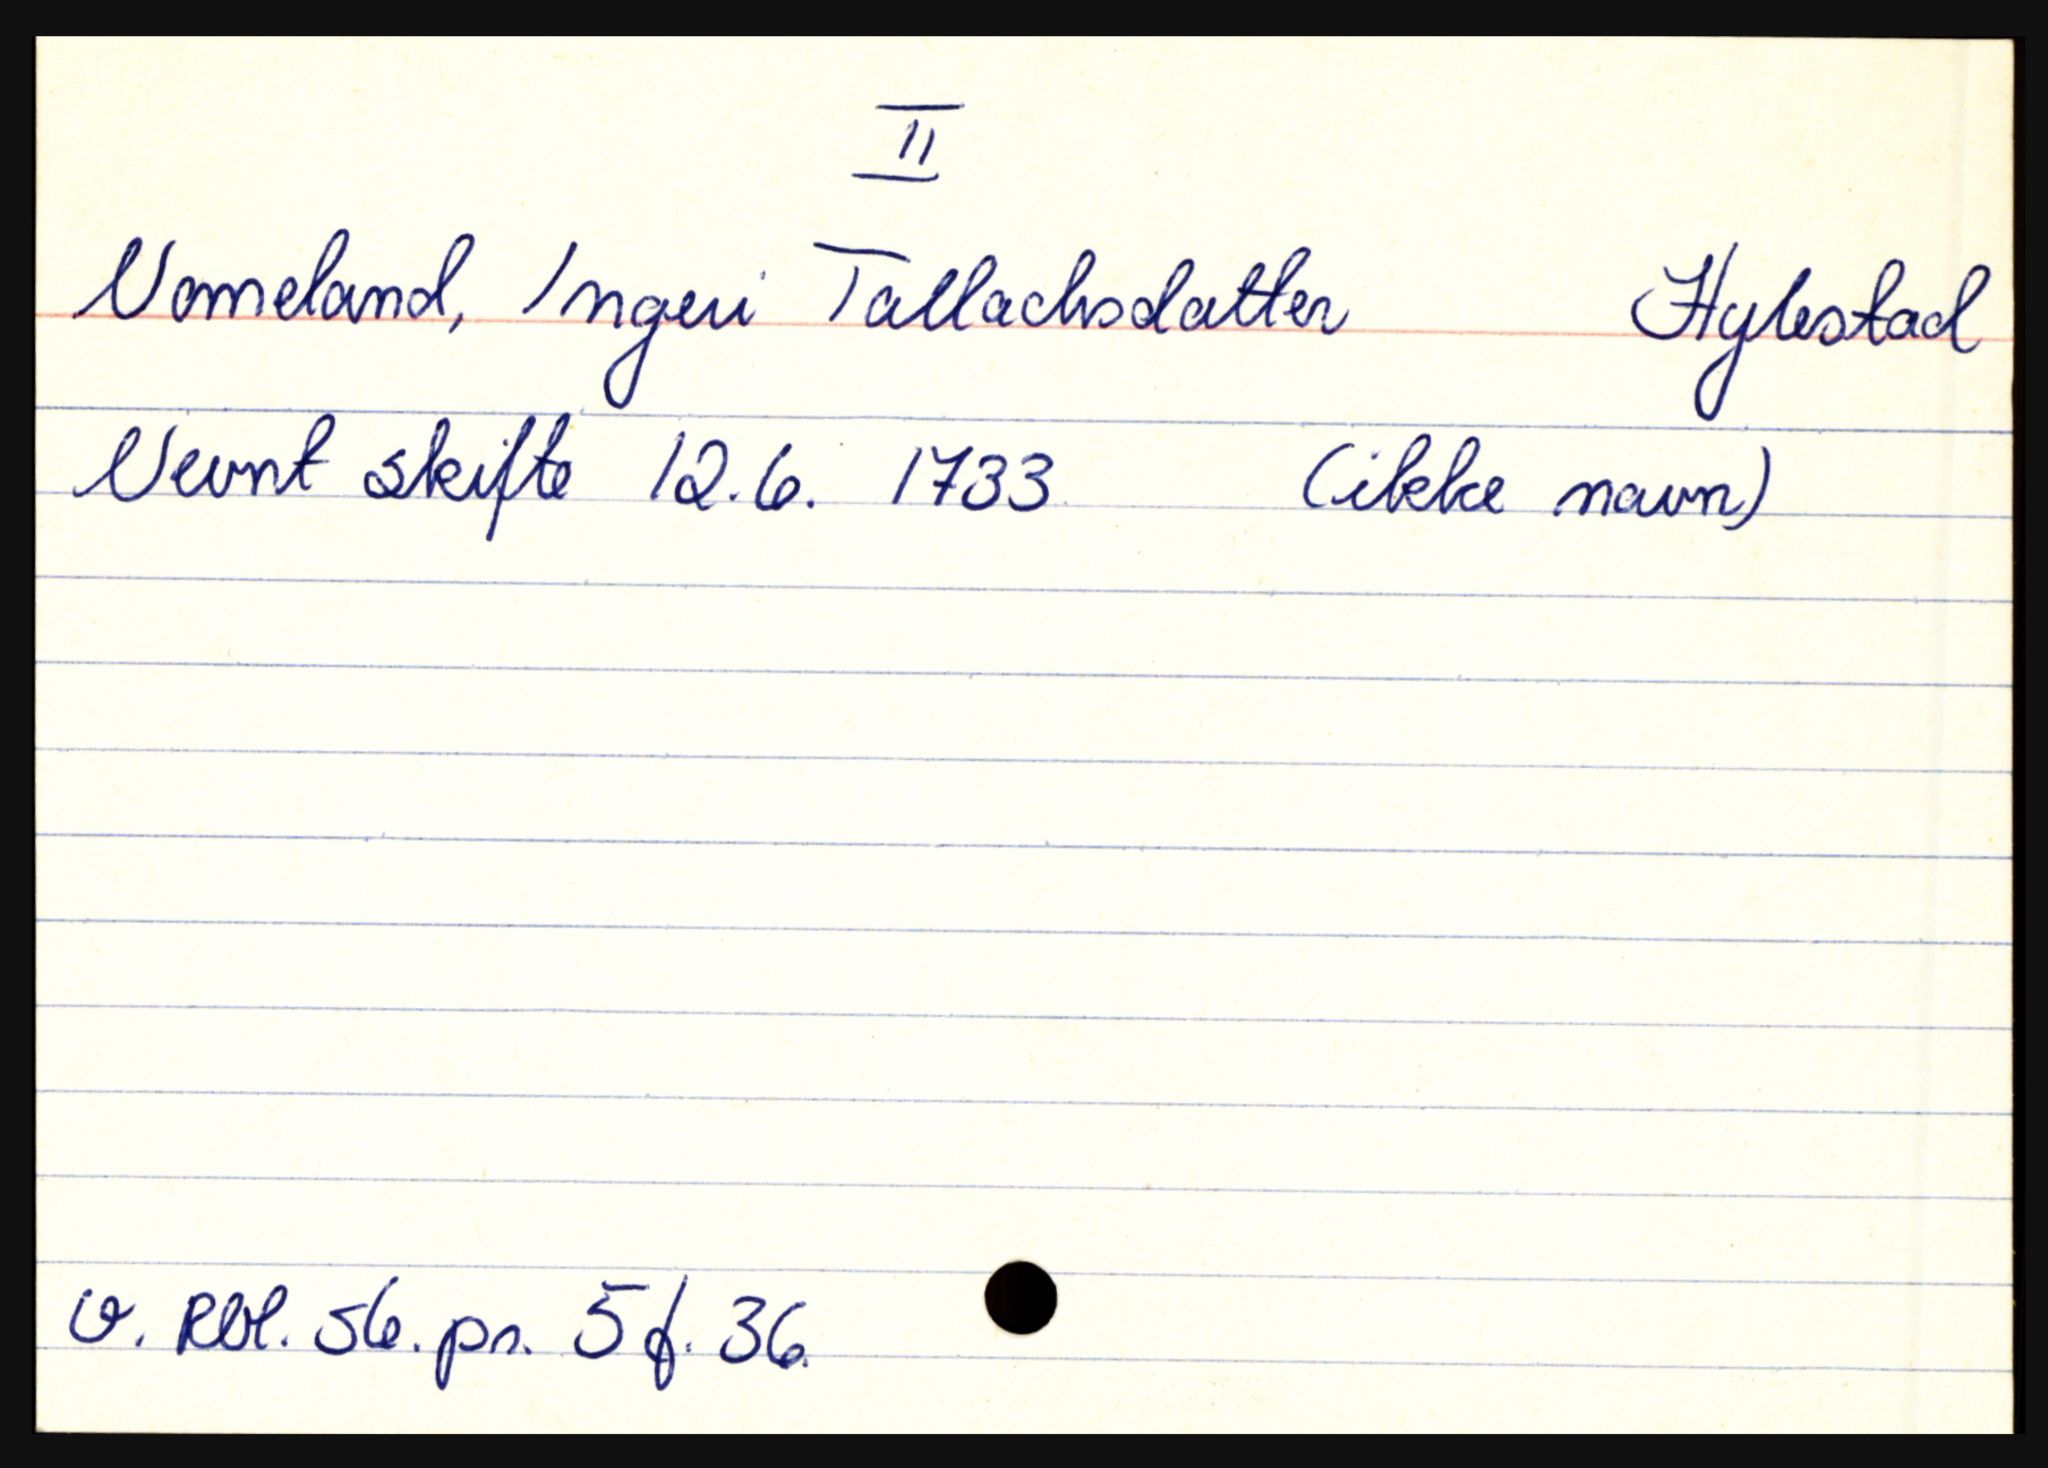 II
Nomeland, Ingeri Tallachsdatter Hylestad
Nevnt skifte 12.6. 1733 (ikke navn)
v. Rbl. 56. pr. 5 f. 36.